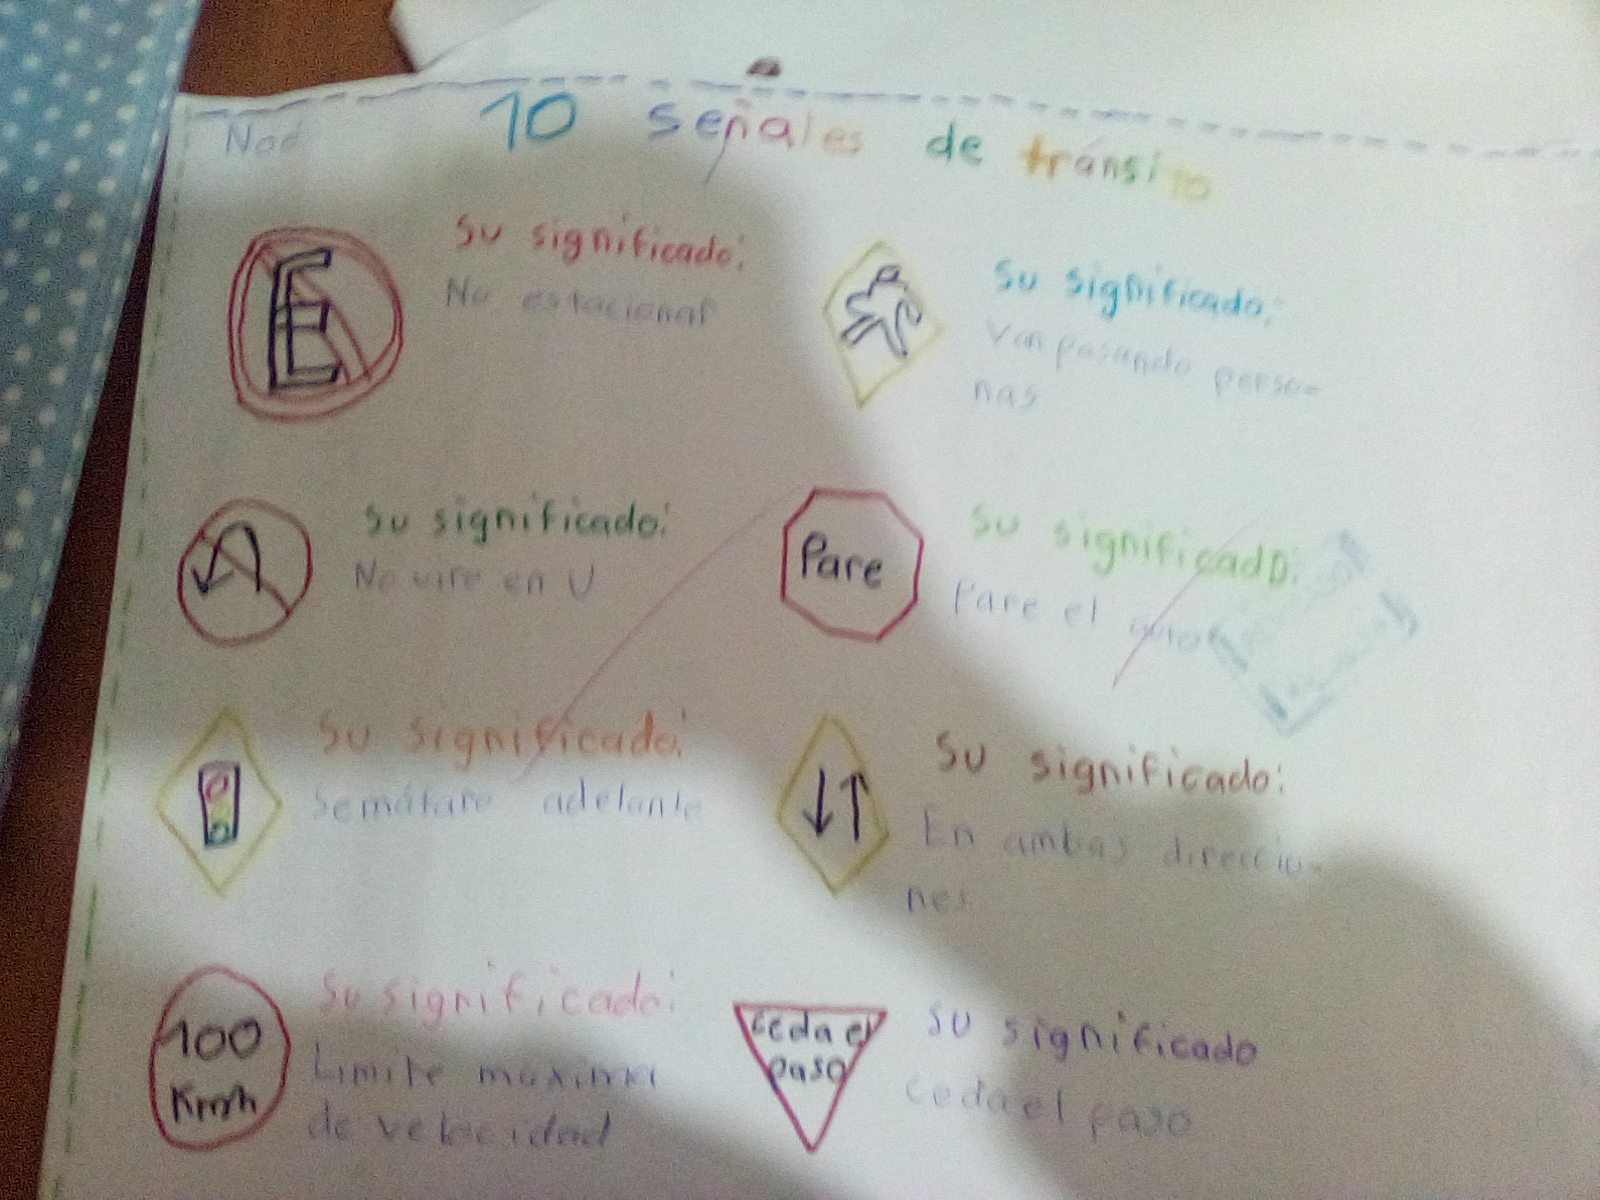 Nad
10 señales de tránsito
E
Su significado:
No estacionar
Su significado:
Van pasando perso-
nas
Su significado:
No vire en U
Pare
Su significado:
Pare el
Su significado:
Semáforo adelante
Su significado:
En ambas direccio-
nes
100
Kmh
Su significado:
Limite maxima
de velocidad
Ceda el
paso
Su significado
Ceda el paso